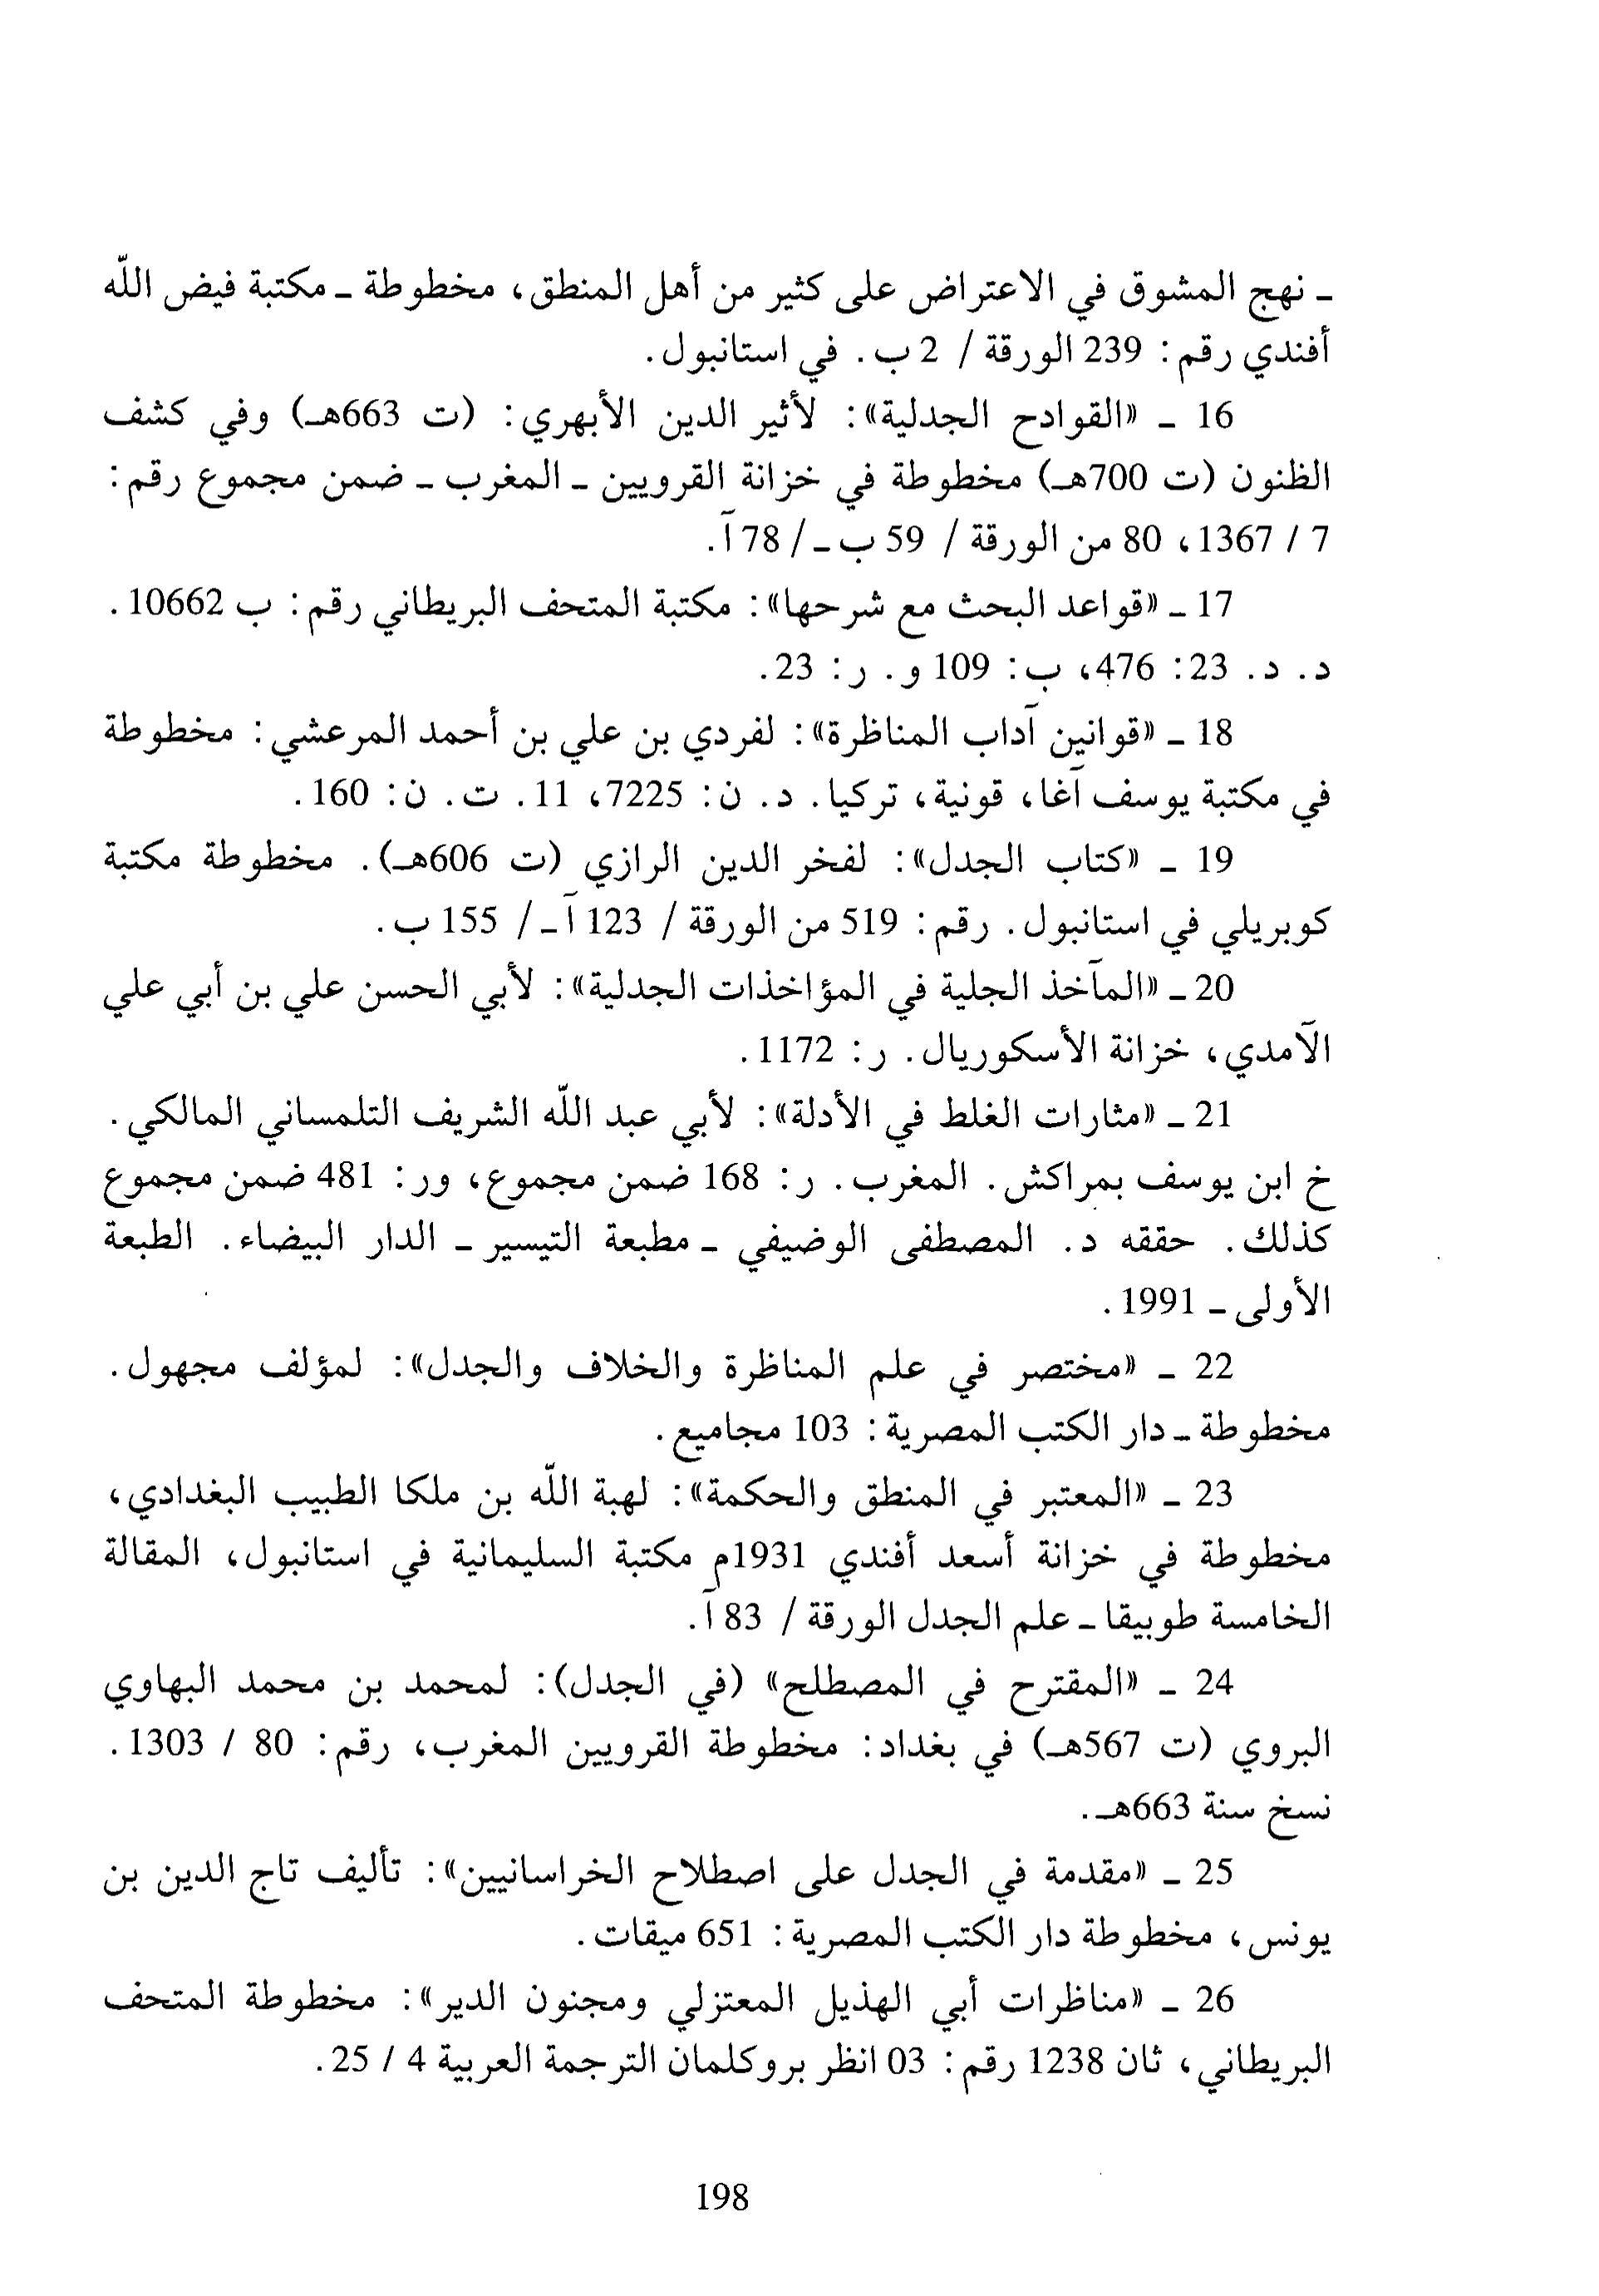 ـ نهج المشوق في الاعتراض على كثير من أهل المنطق، مخطوطة ـ مكتبة فيض اللّه
أفندي رقم: 239 الورقة / 2 ب. في استانبول.
16 ـ «القوادح الجدلية»: لأثير الدين الأبهري: (ت 663هـ) وفي كشف
الظنون (ت 700هـ) مخطوطة في خزانة القرويين ـ المغرب ـ ضمن مجموع رقم:
7 / 1367، 80 من الورقة / 59 ب ـ/ 78 آ.
17 ـ «قواعد البحث مع شرحها»: مكتبة المتحف البريطاني رقم: ب 10662.
د. د. 23: 476، ب: 109 و. ر: 23.
18 ـ «قوانين آداب المناظرة»: لفردي بن علي بن أحمد المرعشي: مخطوطة
في مكتبة يوسف آغا، قونية، تركيا. د. ن: 7225، 11. ت. ن: 160.
19 ـ «كتاب الجدل»: لفخر الدين الرازي (ت 606هـ). مخطوطة مكتبة
كوبريلي في استانبول. رقم: 519 من الورقة / 123 آ ـ/ 155 ب.
20 ـ «المآخذ الجلية في المؤاخذات الجدلية»: لأبي الحسن علي بن أبي علي
الآمدي، خزانة الأسكوريال. ر: 1172.
21 ـ «مثارات الغلط في الأدلة»: لأبي عبد اللّه الشريف التلمساني المالكي.
خ ابن يوسف بمراكش. المغرب. ر: 168 ضمن مجموع، ور: 481 ضمن مجموع
كذلك. حققه د. المصطفى الوضيفي ـ مطبعة التيسير ـ الدار البيضاء. الطبعة
الأولى ـ 1991.
22 ـ «مختصر في علم المناظرة والخلاف والجدل»: لمؤلف مجهول.
مخطوطة ـ دار الكتب المصرية: 103 مجاميع.
23 ـ «المعتبر في المنطق والحكمة»: لهبة اللّه بن ملكا الطبيب البغدادي،
مخطوطة في خزانة أسعد أفندي 1931م مكتبة السليمانية في استانبول، المقالة
الخامسة طوبيقا ـ علم الجدل الورقة / 83 آ.
24 ـ «المقترح في المصطلح» (في الجدل): لمحمد بن محمد البهاوي
البروي (ت 567هـ) في بغداد: مخطوطة القرويين المغرب، رقم: 80 / 1303.
نسخ سنة 663هـ.
25 ـ «مقدمة في الجدل على اصطلاح الخراسانيين»: تأليف تاج الدين بن
يونس، مخطوطة دار الكتب المصرية: 651 ميقات.
26 ـ «مناظرات أبي الهذيل المعتزلي ومجنون الدير»: مخطوطة المتحف
البريطاني، ثان 1238 رقم: 03 انظر بروكلمان الترجمة العربية 4 / 25.
198